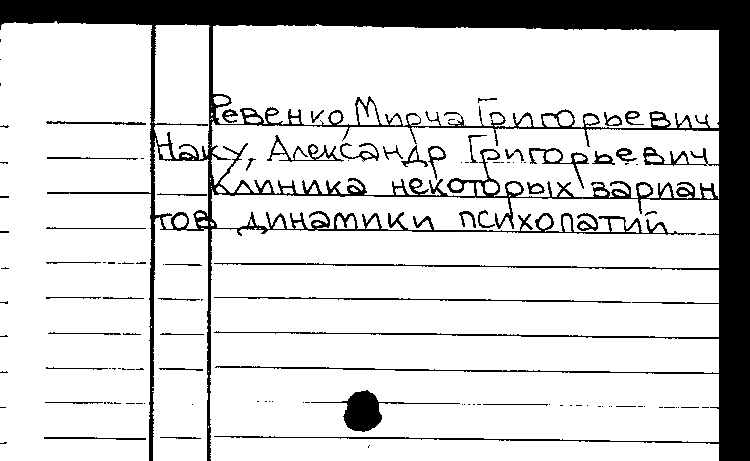 Ревенко, Мирча Григорьевич.
Наку, Александр Григорьевич
Клиника некоторых вариан
тов динамики психопатий.